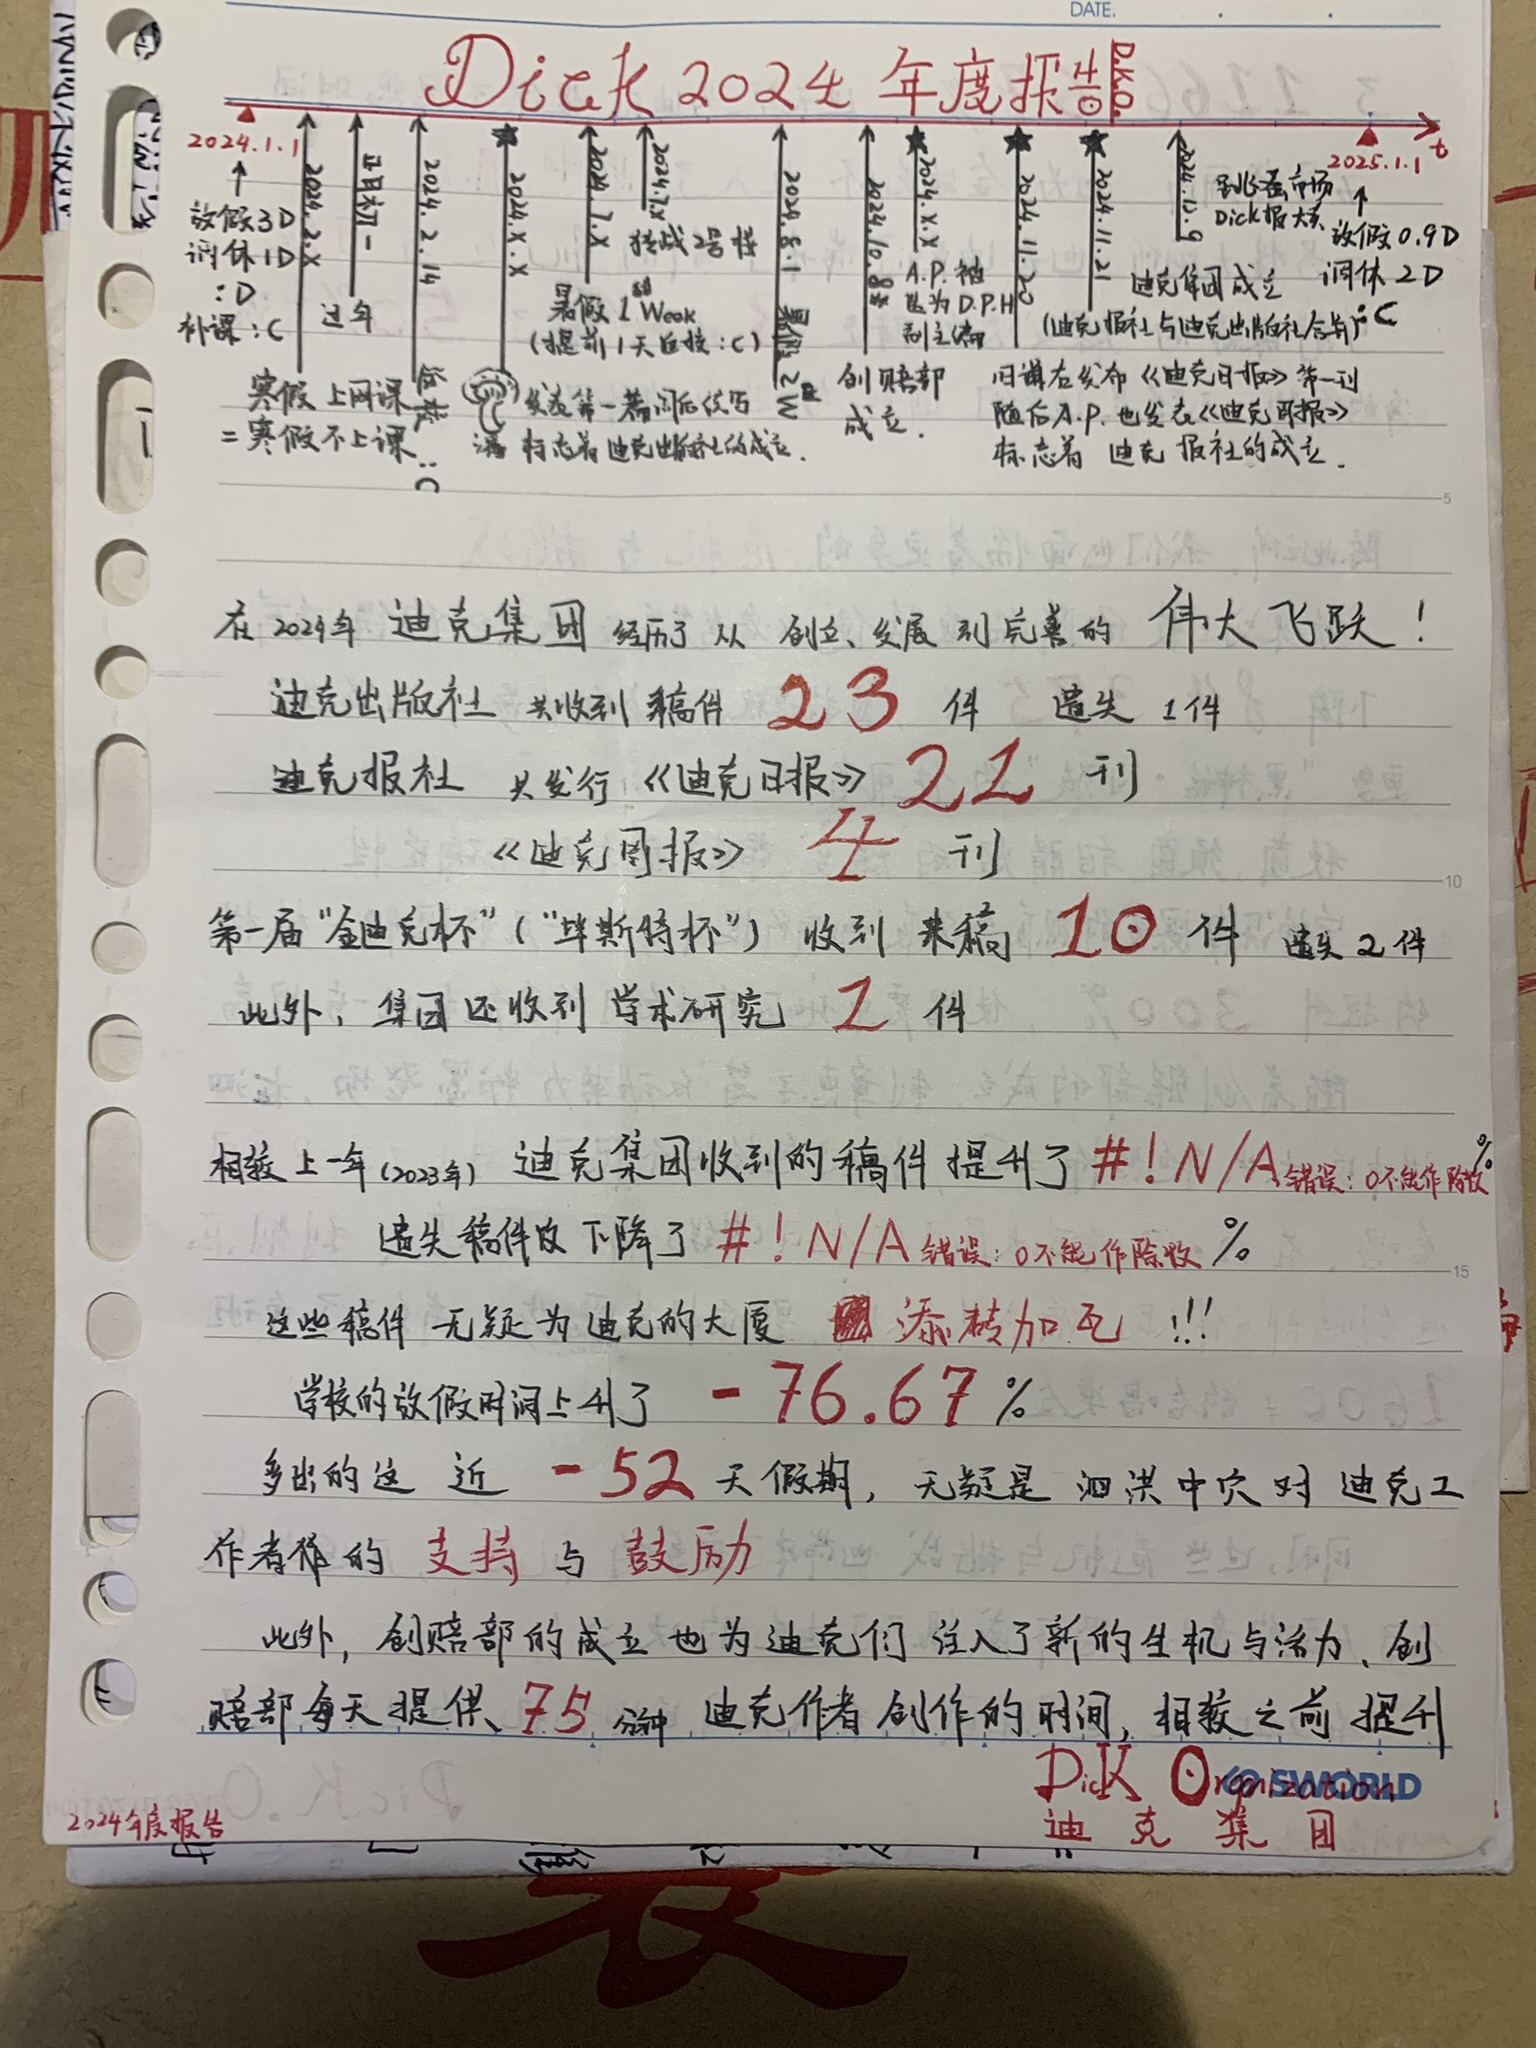 DATE.
Dick 2024 年度报告
D.K.O.
2024.1.1
2025.1.1
t
放假3D
调休1D
:D
补课:C
2024.2.X
寒假上网课
=寒假不上课
正月初一
过年
2024.2.14
:C
2024.X.X
发表第一篇
标志着迪克出版社的成立.
2024.7.X
暑假1 Week
(提前1天返校:C)
2024.7.X
挑战2号楼
2024.8.1
暑假2W
2024.10.8
创赔部
成立.
2024.X.X
A.P.被
选为D.P.H
副主编
2024.11.20
发布《迪克日报》第一刊
随后A.P.也发表《迪克周报》
标志着 迪克报社的成立.
2024.11.21
迪克集团成立
(迪克报社与迪克出版社合并)
2024.12.9
跳蚤市场
Dick报大卖
放假0.9D
调休2D
:C
在2024年 迪克集团 经历了从 创立、发展到完善的 伟大飞跃!
迪克出版社 共收到稿件 23 件 遗失1件
迪克报社 共发行《迪克日报》21 刊
《迪克周报》 4 刊
第一届“金迪克杯”(“毕斯特杯”) 收到来稿 10 件 遗失2件
此外,集团还收到 学术研究 1 件
相较上一年(2023年) 迪克集团收到的稿件提升了 #!N/A 错误:0不能作除数 %
遗失稿件数下降了 #!N/A 错误:0不能作除数 %
这些稿件 无疑为迪克的大厦 添砖加瓦 !!!
学校的放假时间上升了 -76.67%
多出的这 近 -52 天假期,无疑是 泗洪中穴对 迪克工
作者作的 支持 与 鼓励
此外,创赔部的成立也为迪克们 注入了新的生机与活力、创
赔部每天提供 75 分钟 迪克作者创作的时间,相较之前提升
SWORLD
Dick Orgnization
迪克集团
2024年度报告